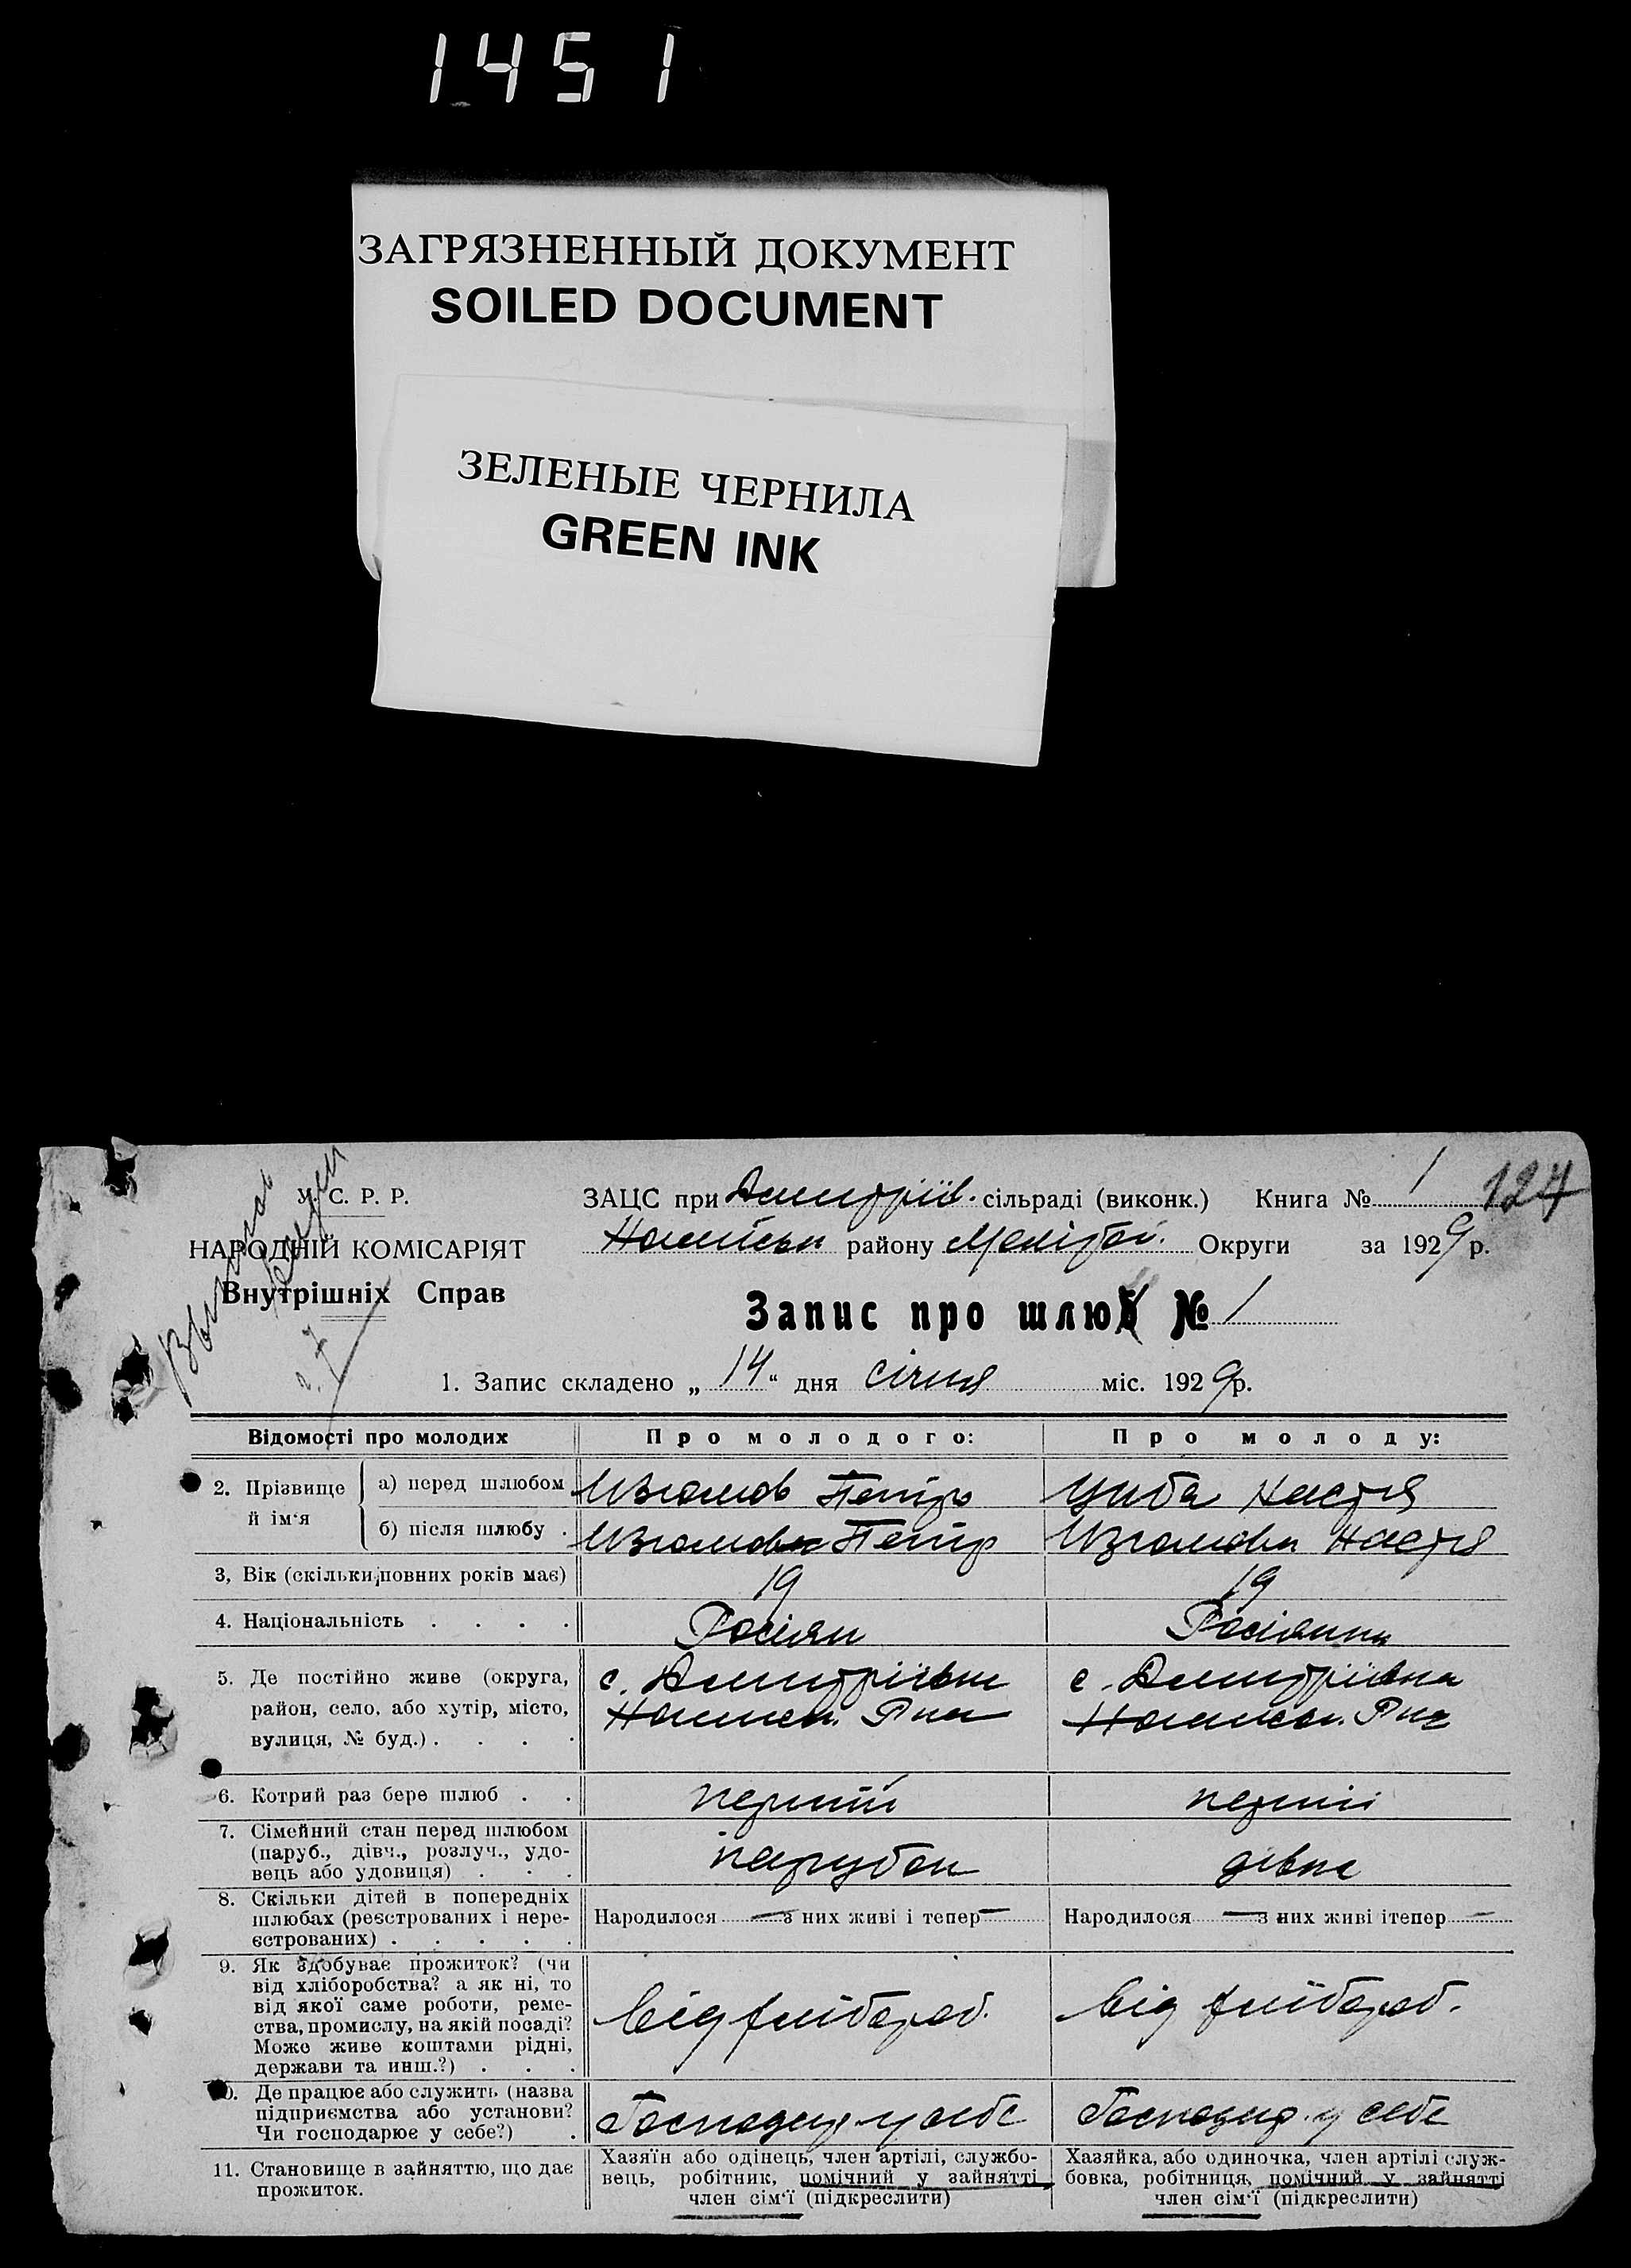 1451
ЗАГРЯЗНЕННЫЙ ДОКУМЕНТ
SOILED DOCUMENT
ЗЕЛЕНЫЕ ЧЕРНИЛА
GREEN INK
У. С. Р. Р.
НАРОДНІЙ КОМІСАРІЯТ
Внутрішніх Справ
ЗАЦС при Дмитріїв. сільраді (виконк.) Книга № 1 124
району Меліт Округи за 1929 р.
Запис про шлюб № 1
1. Запис складено „ 14 “ дня січня міс. 1929 р.
Відомості про молодих
Про молодого:
Про молоду:
2. Прізвище й ім‘я
а) перед шлюбом
Петро
Циба Настя
б) після шлюбу .
Петр
Настя
3, Вік (скільки повних років має)
19
19
4. Національність . . . .
Росіян
Росіянка
5. Де постійно живе (округа,
район, село, або хутір, місто,
вулиця, № буд.) . . . .
с. Дмитрівки
с. Дмитрівка
6. Котрий раз бере шлюб . .
перший
перший
7. Сімейний стан перед шлюбом
(паруб., дівч., розлуч., удо-
вець або удовиця) . . .
парубок
дівка
8. Скільки дітей в попередніх
шлюбах (реєстрованих і нере-
єстрованих) . . . . .
Народилося — з них живі і тепер —
Народилося — з них живі ітепер —
9. Як здобуває прожиток? (чи
від хліборобства? а як ні, то
від якої саме роботи, реме-
ства, промислу, на якій посаді?
Може живе коштами рідні,
держави та инш.?) . . .
від хлібороб.
від хлібороб.
10. Де працює або служить (назва
підприємства або установи?
Чи господарює у себе?) .
Господар у себе
Господар. у себе
11. Становище в зайняттю, що дає
прожиток.
Хазяїн або одінець, член артілі, службо-
вець, робітник, помічний у зайнятті
член сім‘ї (підкреслити)
Хазяйка, або одиночка, член артілі служ-
бовка, робітниця, помічний у зайнятті
член сім‘ї (підкреслити)